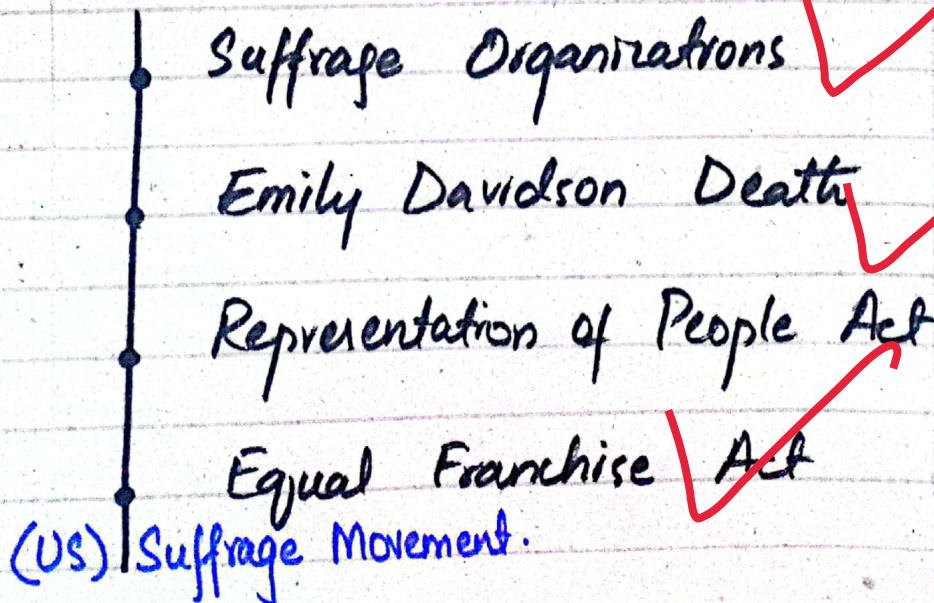 Suffrage Organizations
Emily Davidson Death
Representation of People Act
Equal Franchise Act
(US) Suffrage Movement.